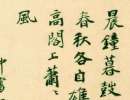 晨鐘暮鼓
春秋各自雄
高閣上蕭=
風